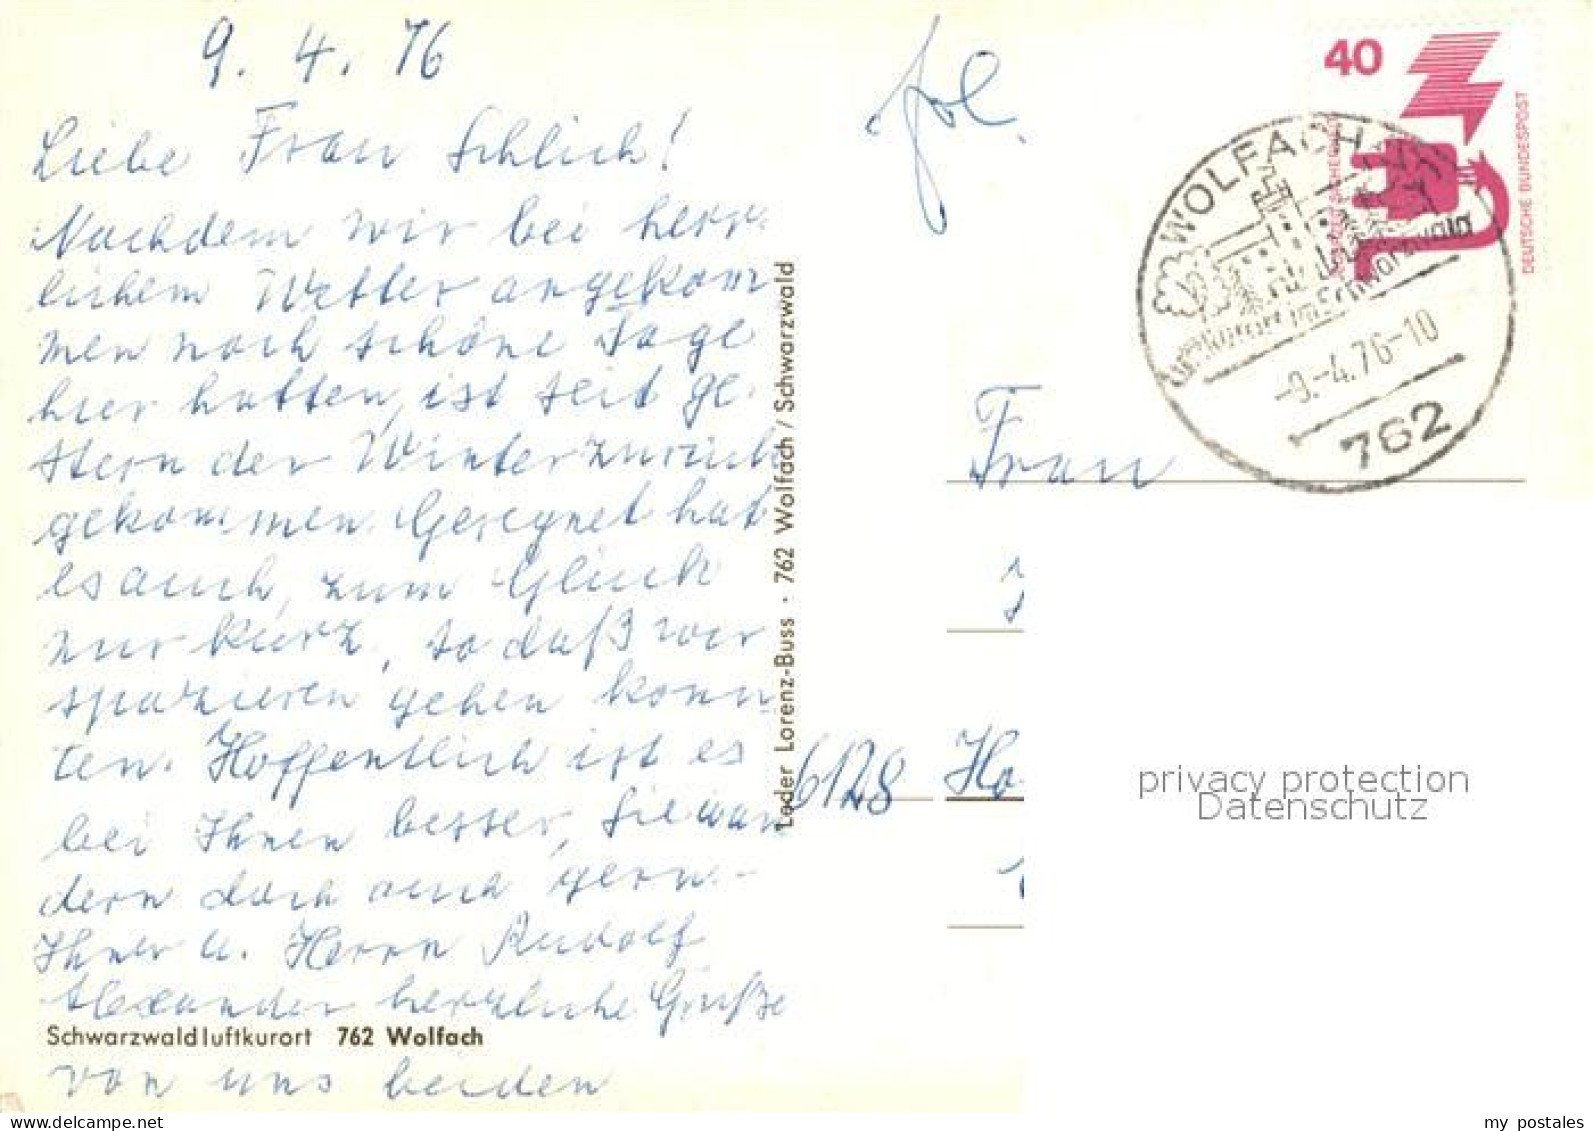 9. 4. 76
Liebe Frau Schlich!
Nachdem wir bei herr-
lichem Wetter angekom
men noch schöne Tage
hier hatten, ist seit ge-
stern der Winter zurück
gekommen. Geregnet hat
es auch, zum Glück
nur kurz, so daß wir
spazieren gehen konn
ten. Hoffentlich ist es
bei Ihnen besser, Sie wan
dern doch auch gern.-
Ihnen u. Herrn Rudolf
Alexander herzliche Grüße
Schwarzwaldluftkurort 762 Wolfach
von uns beiden
Leder Lorenz-Buss · 762 Wolfach / Schwarzwald
40
DEUTSCHE BUNDESPOST
WOLFACH
Luftkurort im Schwarzwald
-9.-4.76-10
762
Frau
6128 Hö
privacy protection
Datenschutz
my postales
www.delcampe.net